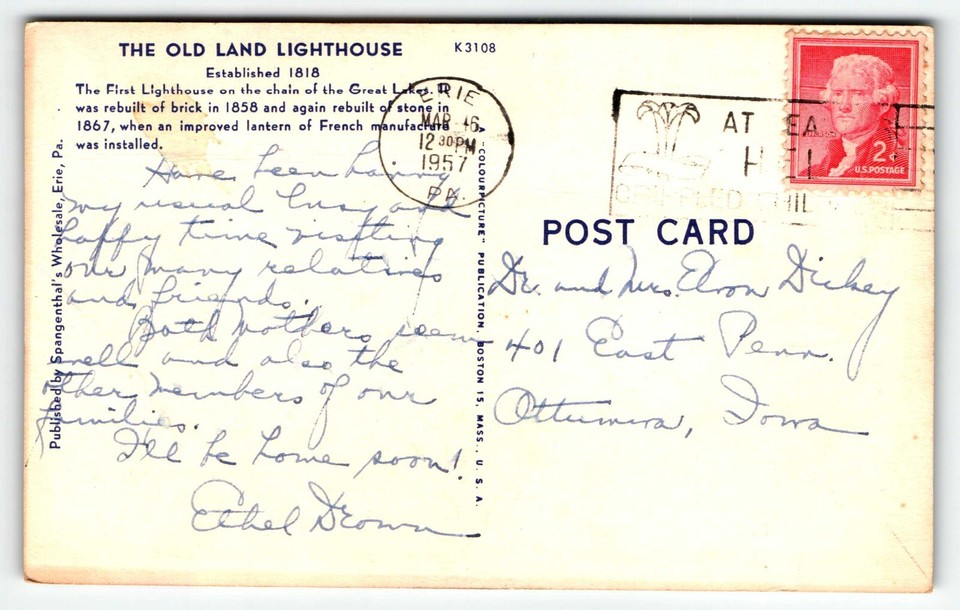 THE OLD LAND LIGHTHOUSE
K3108
Established 1818
The First Lighthouse on the chain of the Great Lakes. It
was rebuilt of brick in 1858 and again rebuilt of stone in
1867, when an improved lantern of French manufacture
was installed.
Have been having
my usual busy and
happy time visiting
our many relatives
and friends.
Both Mothers seem
well and also the
other members of our
families.
I'll be home soon!
Ethel Brown
Published by Spangenthal's Wholesale, Erie, Pa.
"COLOURPICTURE" PUBLICATION, BOSTON 15, MASS., U.S.A.
ERIE
MAR 16
12 30 PM
1957
PA.
AT EA
HEL
CRIPPLED CHIL
2¢
U.S. POSTAGE
POST CARD
Dr. and Mrs. Elvon Dickey
401 East Penn.
Ottumwa, Iowa